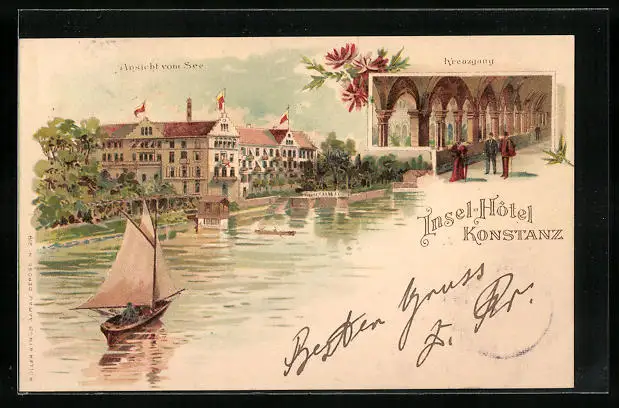 Ansicht vom See.
Kreuzgang
Insel-Hôtel
KONSTANZ
Besten Gruss